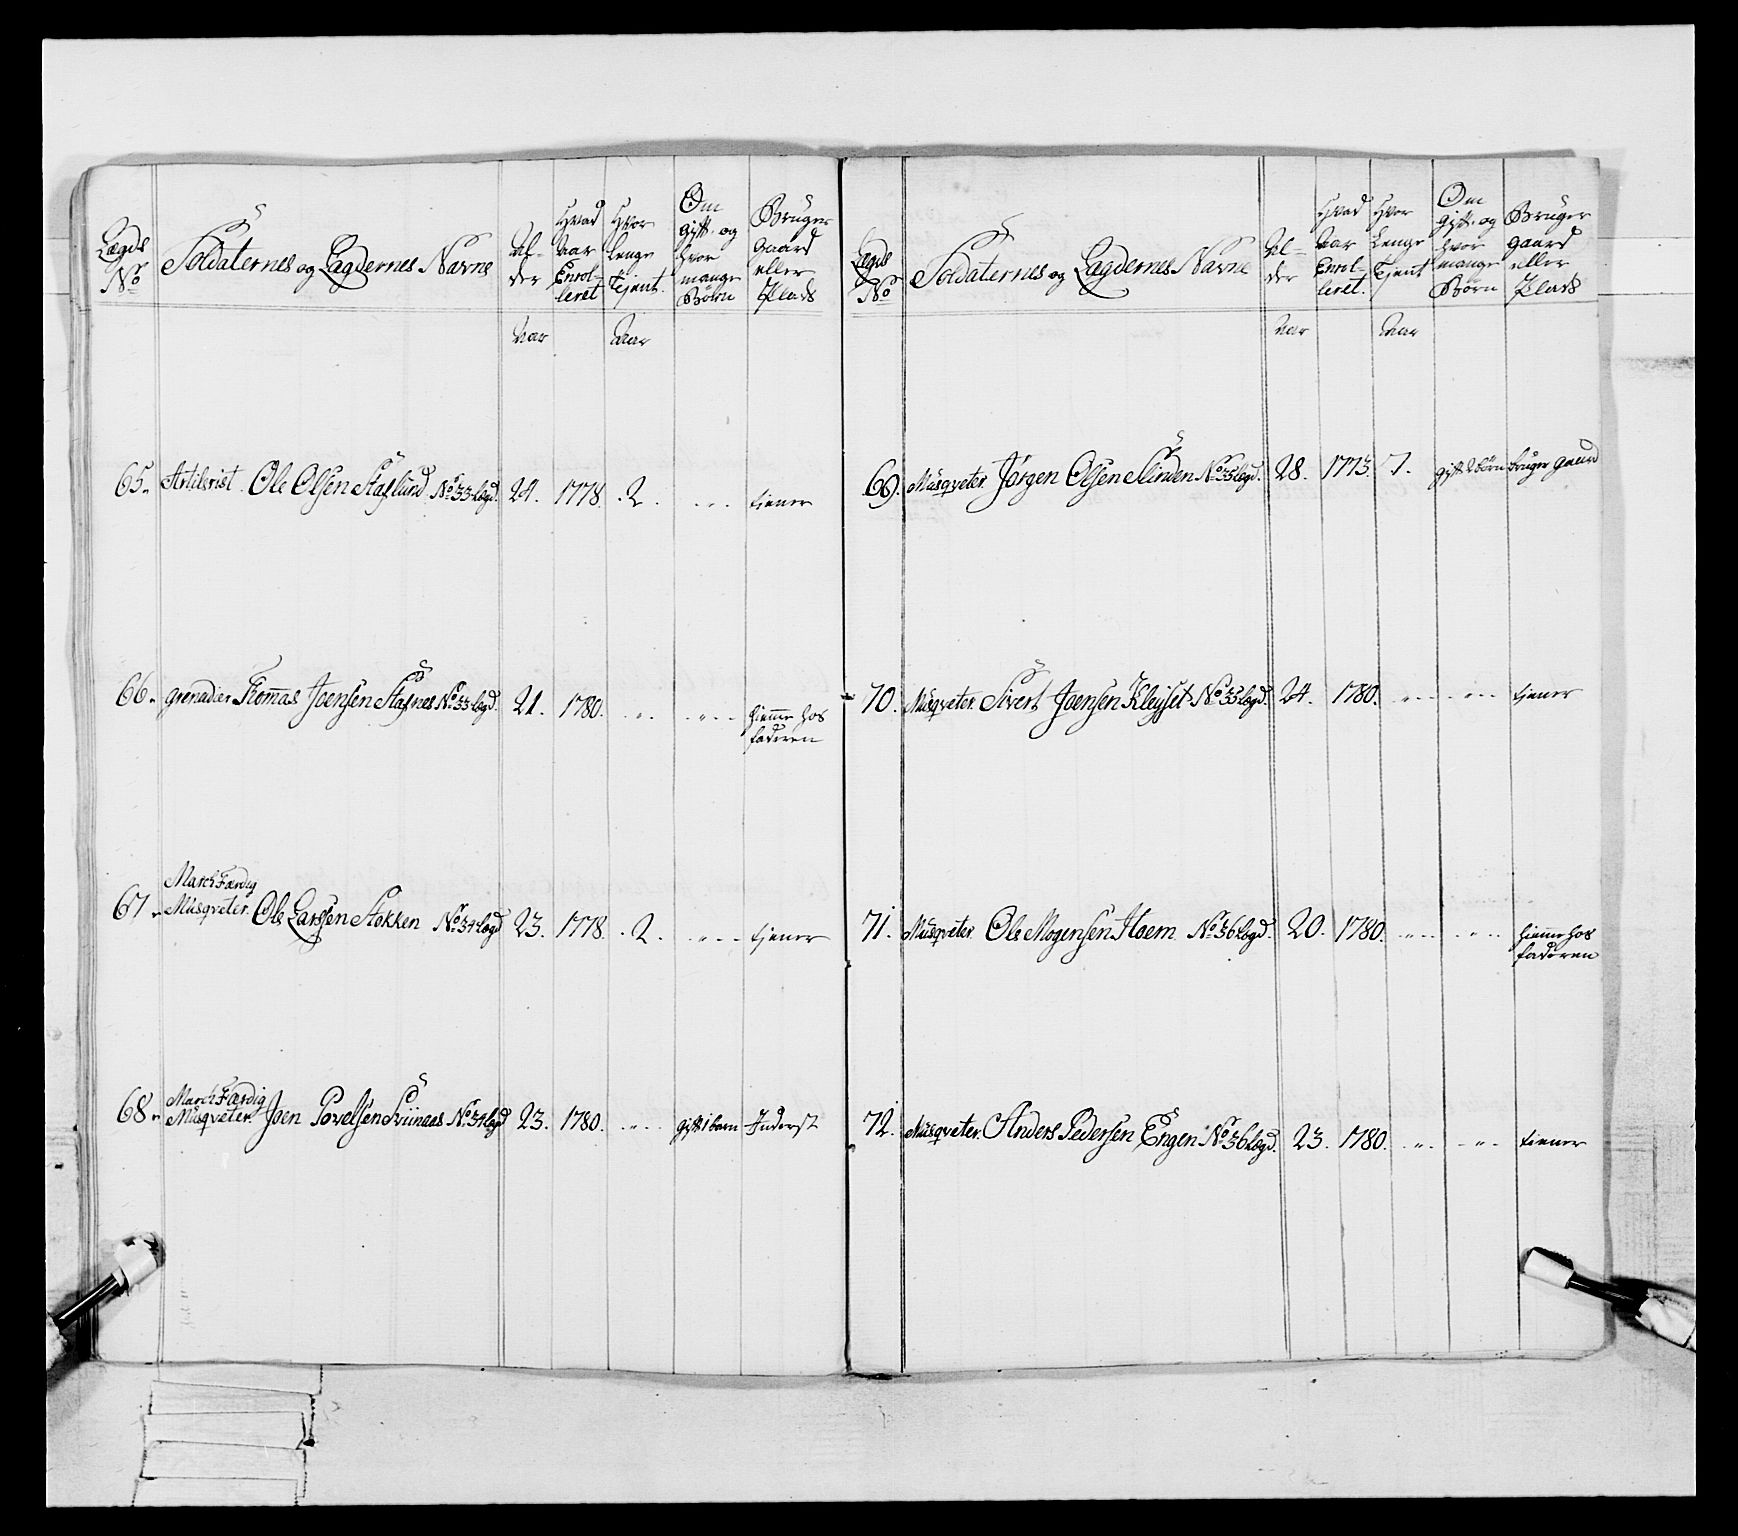 Lægds No
Soldaternes og Lægdernes Navne
Al-der
Hvad Aar Enrol-leret
Hvor Lenge Tjent
Om gift og hvor mange Børn
Bruger Gaard eller Plads
Aar
Aar
65. Artilerist Ole Olsen No 33 Lægd. 24. 1778. 2. tiener
66. Grenadier Thomas Joensen Stafnes No 33 Lægd. 21. 1780. hiemme hos
faderen
March Færdig
67. Musqveter. Ole Larssen Stokken No 34 Lægd 23. 1778. 2. tjener
March Færdig
68. Musqveter. Joen Povelsen Sviinaas No 34 Lægd 23. 1780. gift 1 barn Inderst
Lægds No
Soldaternes og Lægdernes Navne
Al-der
Hvad Aar Enrol-leret.
Hvor Lenge Tjent
Om gift og hvor mange Børn
Bruger gaard eller Plads
Aar
Aar
69. Musqveter. Jørgen Olsen Slinden No 35 Lægd. 28. 1773. 7. gift 2 børn bruger gaard
70. Musqveter. Sivert Joensen Kleyset No 35 Lægd. 24. 1780. tiener
71. Musqveter. Ole Mogensen Hoem No 36 Lægd. 20. 1780. hiemme hos
faderen
72. Musqveter. Anders Pedersen Engen No 36 Lægd. 23. 1780. tiener